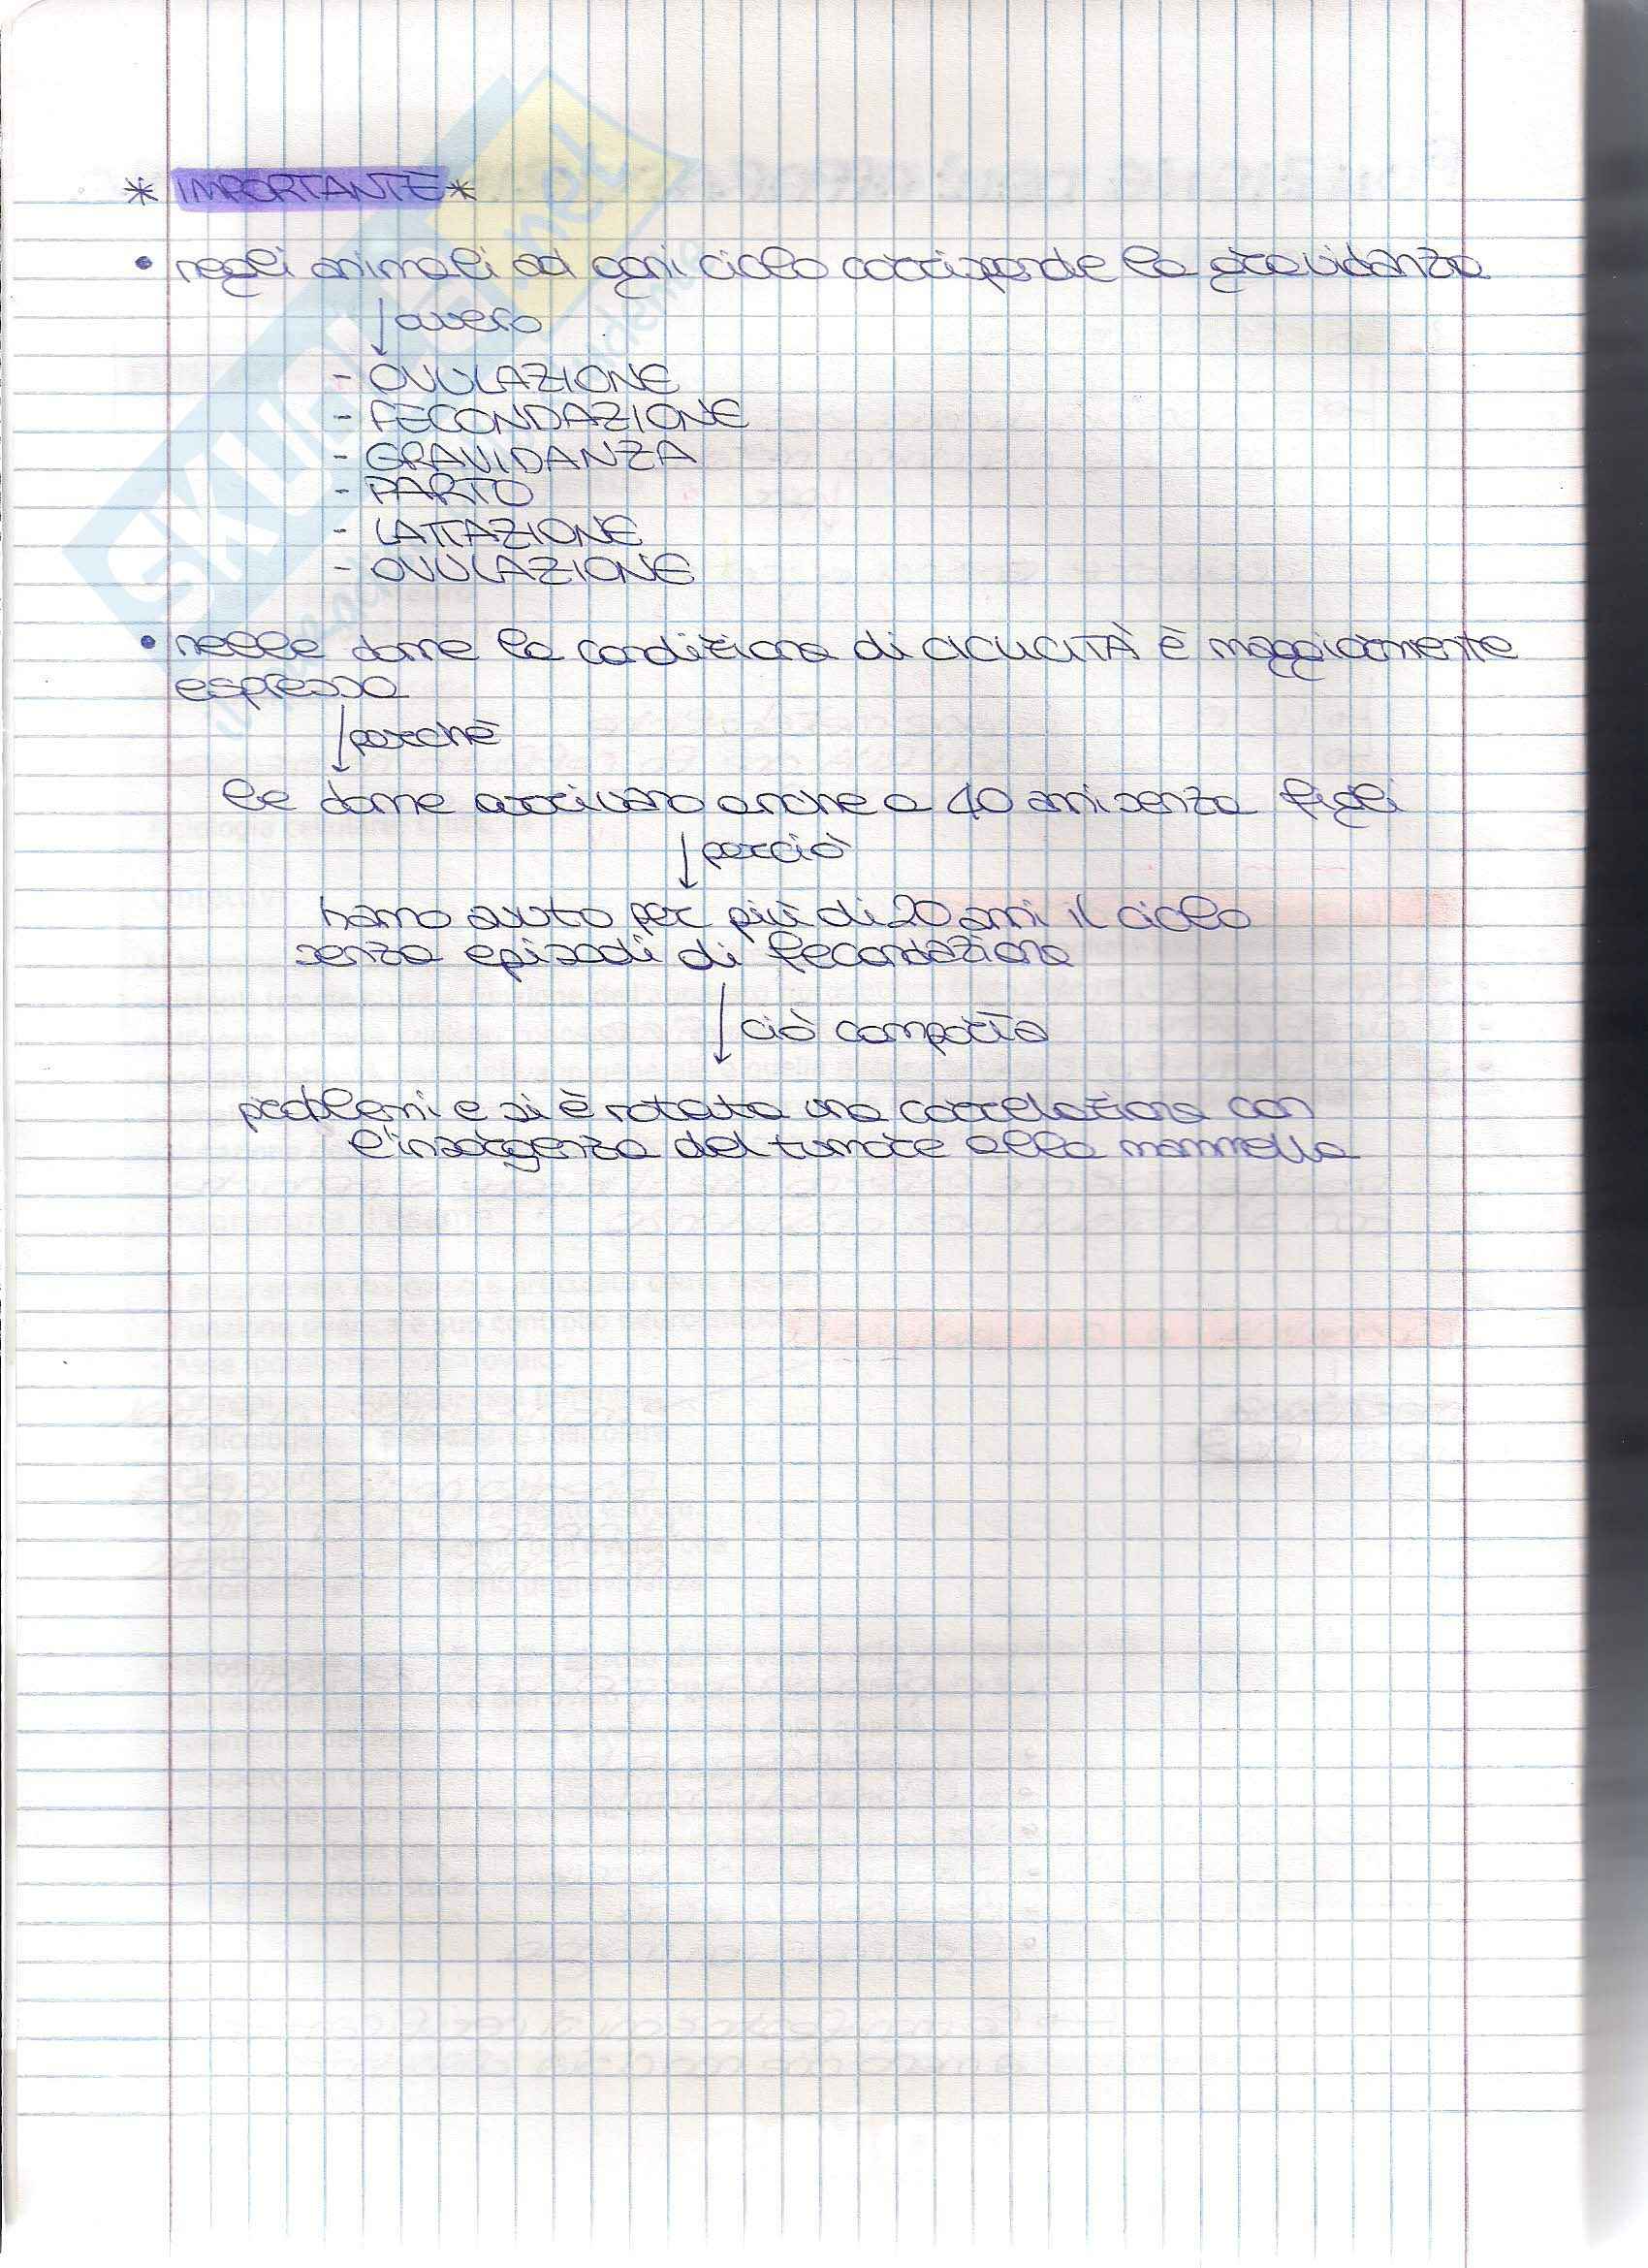 * IMPORTANTE *
• negli animali ad ogni ciclo corrisponde la gravidanza
↓ ovvero
- OVULAZIONE
- FECONDAZIONE
- GRAVIDANZA
- PARTO
- LATTAZIONE
- OVULAZIONE
• nelle donne la condizione di CICLICITÀ è maggiormente
espressa
↓ perchè
le donne arrivano anche a 40 anni senza figli
↓ perciò
hanno avuto per più di 20 anni il ciclo
senza episodi di fecondazione
↓ ciò comporta
problemi e si è notata una correlazione con
l'insorgenza del tumore alla mammella
SKUOLA.net